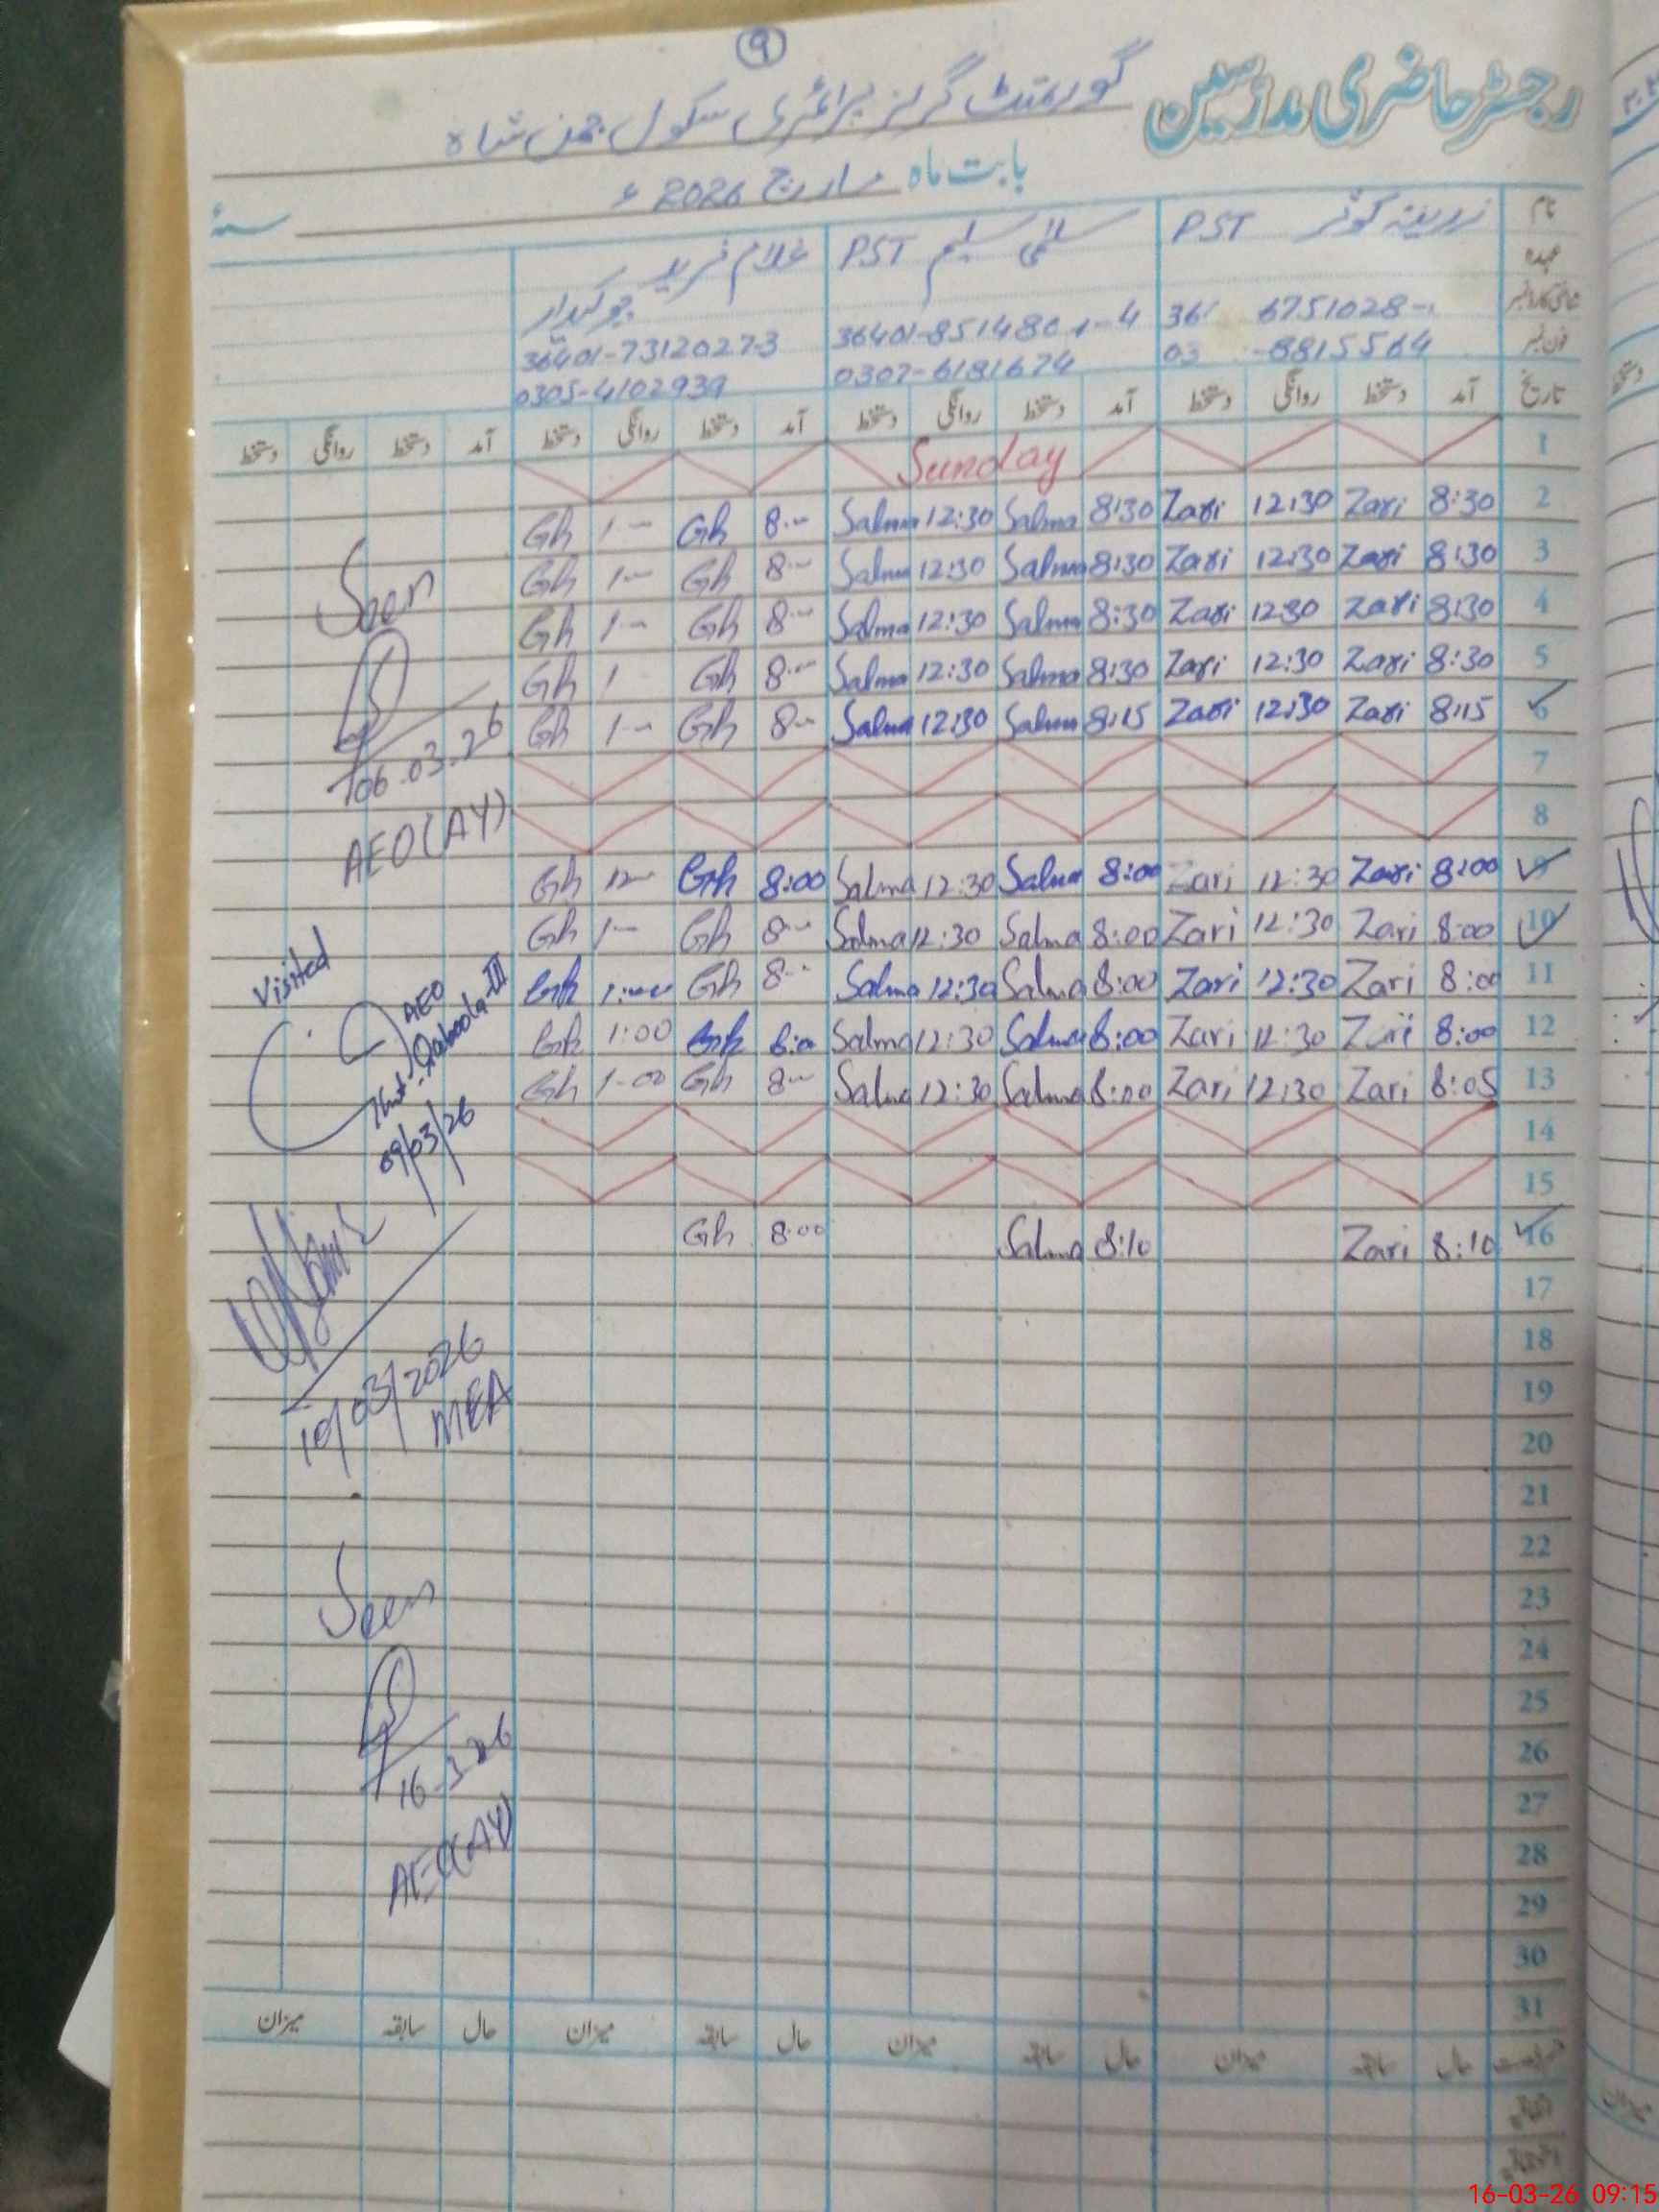 9
رجسٹر حاضری مدرسین گورنمنٹ گرلز پرائمری سکول چمن شاہ
بابت ماہ مارچ 2026ء سنہٴ
نام زرینہ کوثر PST سلمیٰ سلیم PST غلام فرید
عہدہ چوکیدار
شناختی کارڈ نمبر 36401-73120273
فون نمبر -8815564 0307-6181674 0305-4102939
تاریخ آمد دستخط روانگی دستخط آمد دستخط روانگی دستخط آمد دستخط روانگی دستخط آمد دستخط روانگی دستخط
1 Sunday
2 8:30 Zari 12:30 Zari 8:30 Salma 12:30 Salma 8-- Gh 1-- Gh
3 8:30 Zari 12:30 Zari 8:30 Salma 12:30 Salma 8-- Gh 1-- Gh
4 8:30 Zari 1230 Zari 8:30 Salma 12:30 Salma 8-- Gh 1-- Gh
5 8:30 Zari 12:30 Zari 8:30 Salma 12:30 Salma 8-- Gh 1 Gh
6 8:15 Zari 12:30 Zari 8:15 Salma 12:30 Salma 8-- Gh 1-- Gh
7
8
9 8:00 Zari 12:30 Zari 8:00 Salma 12:30 Salma 8:00 Gh 12-- Gh
10 8:00 Zari 12:30 Zari 8:00 Salma 12:30 Salma 8-- Gh 1-- Gh
11 8:00 Zari 12:30 Zari 8:00 Salma 12:30 Salma 8-- Gh 1:00 Gh
12 8:00 Zari 12:30 Zari 8:00 Salma 12:30 Salma 8:00 Gh 1:00 Gh
13 8:05 Zari 12:30 Zari 8:00 Salma 12:30 Salma 8-- Gh 1-00 Gh
14
15
16 8:10 Zari 8:10 Salma 8:00 Gh
17
18
19
20
21
22
23
24
25
26
27
28
29
30
31
Seen
06-03-26
AEO(AY)
Visited
AEO
Qaboola-III
09/03/26
10/03/2026
MEA
Seen
16-3-26
AEO(AY)
حال سابقہ میزان حال سابقہ میزان حال سابقہ میزان حال سابقہ میزان
16-03-26 09:15